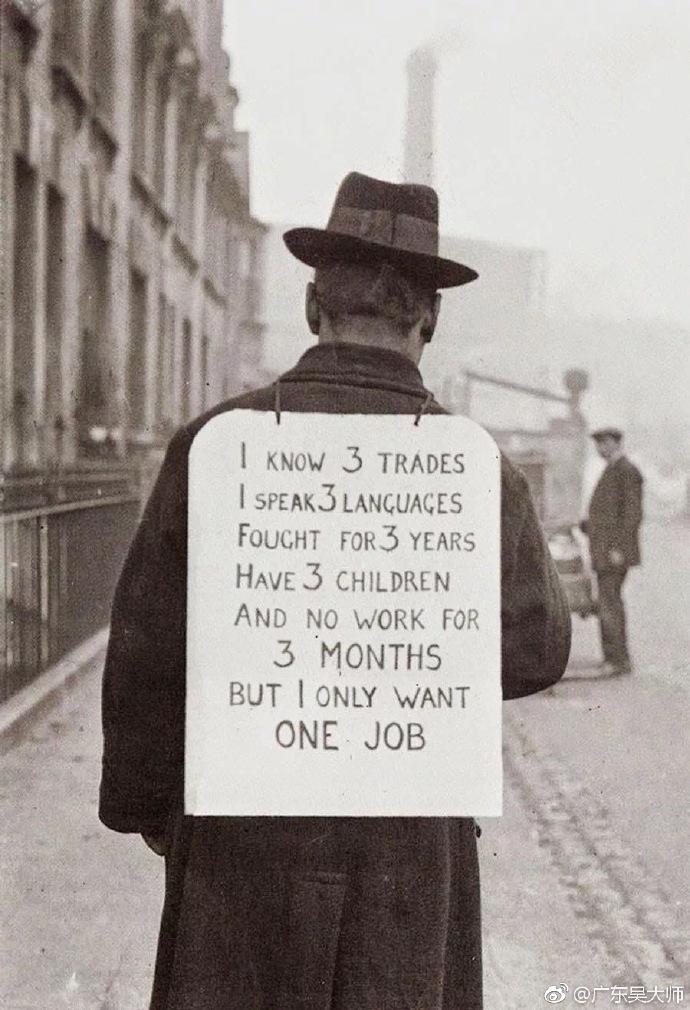 I KNOW 3 TRADES
I SPEAK 3 LANGUAGES
FOUGHT FOR 3 YEARS
HAVE 3 CHILDREN
AND NO WORK FOR
3 MONTHS
BUT I ONLY WANT
ONE JOB
@广东吴大师